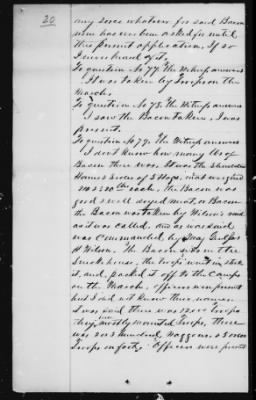 20
any one whatever for said Bacon
ever has even been asked for until
this present application. If so
I never heard of it.
To question No 77. The Witness answers
It was taken by Troops on the
March.
To question No 78. The Witness answers
I saw the Bacon taken. I was
present.
To question No 79. The Witness answers
I don't know how many lbs of
Bacon there was. It was the Shoulders
Hams & sides of 5 Hogs. that weighed
lbs each. The Bacon was
good & well dryed meat, or Bacon
the Bacon was taken by Wilson's raid
as it was called, and as was said
was commanded by Genl
H Wilson. The Bacon was in the
Smoke house, the troops went in &
it, and packed it off to the Camps
on the March. Officers were present
but I did not know their names.
I was said there was 12000 Troops
they mostly mounted Troops, there
was hundred Waggons &
Troops on foot, Officers were present